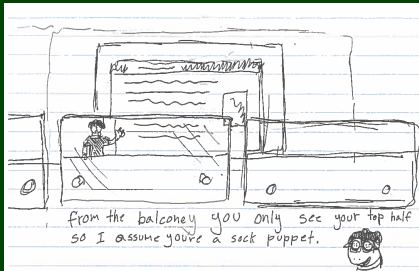 from the balconey you only see your top half
so I assume youre a sock puppet.